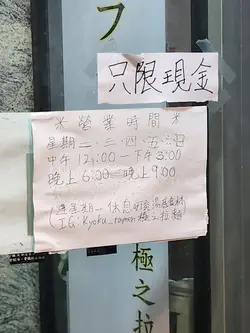 フ
只限現金
※營業時間※
星期二.三.四.五.六.日
中午12:00-下午3:00
晚上6:00-晚上9:00
(逢星期一休息
IG:Kyoku_ramen 極之拉麵
極之拉